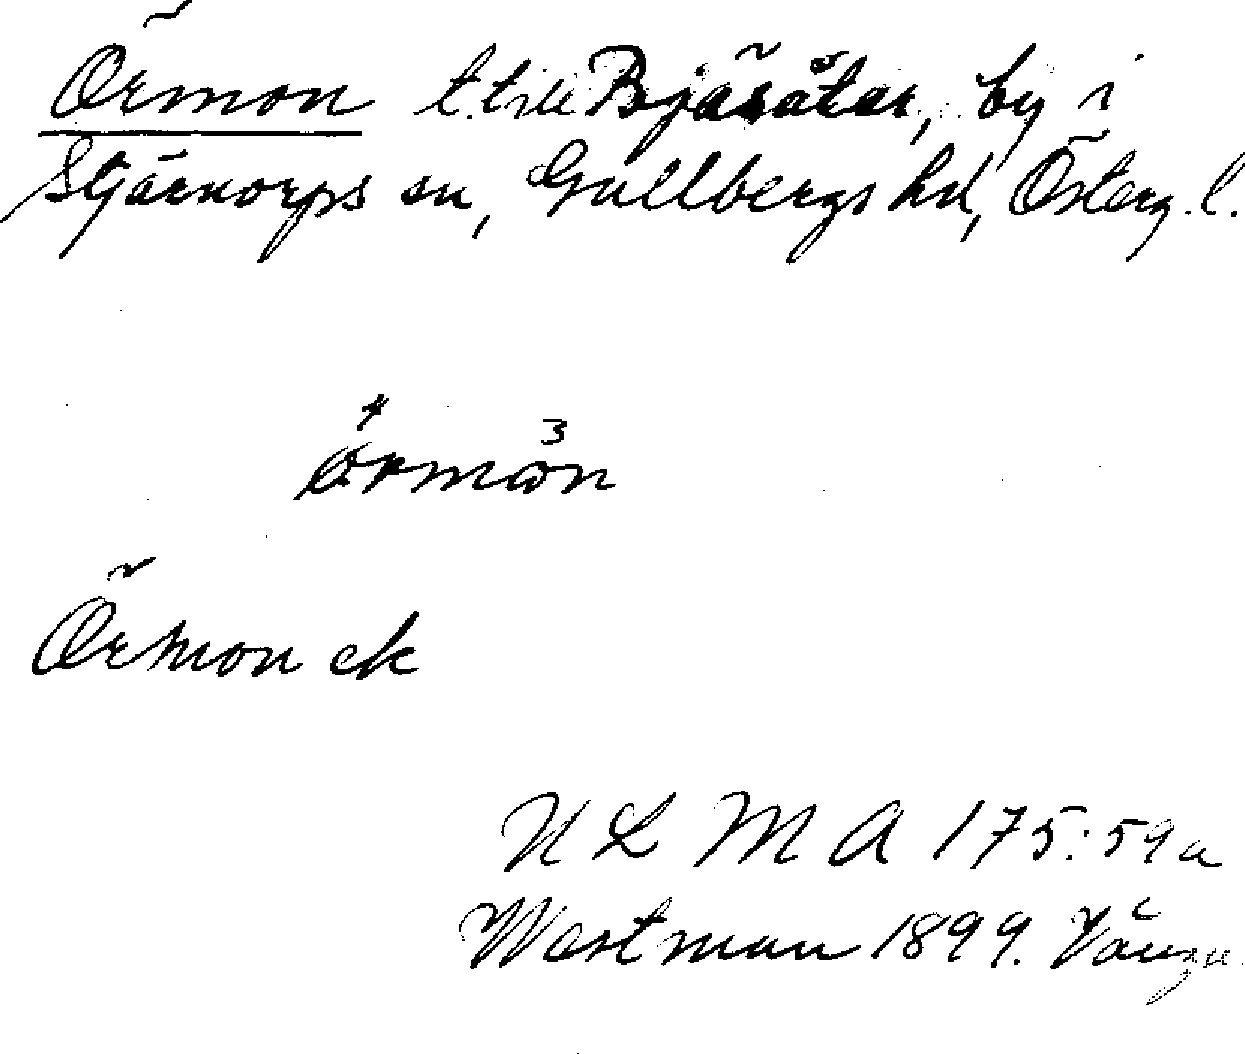 Örmon t. till Bjäsätar, by i
Stjärnorps sn, Gullbergs hd, Österg.l.
4 3
örmon
Örmon ek
U L M A 175:59a
Westman 1899.